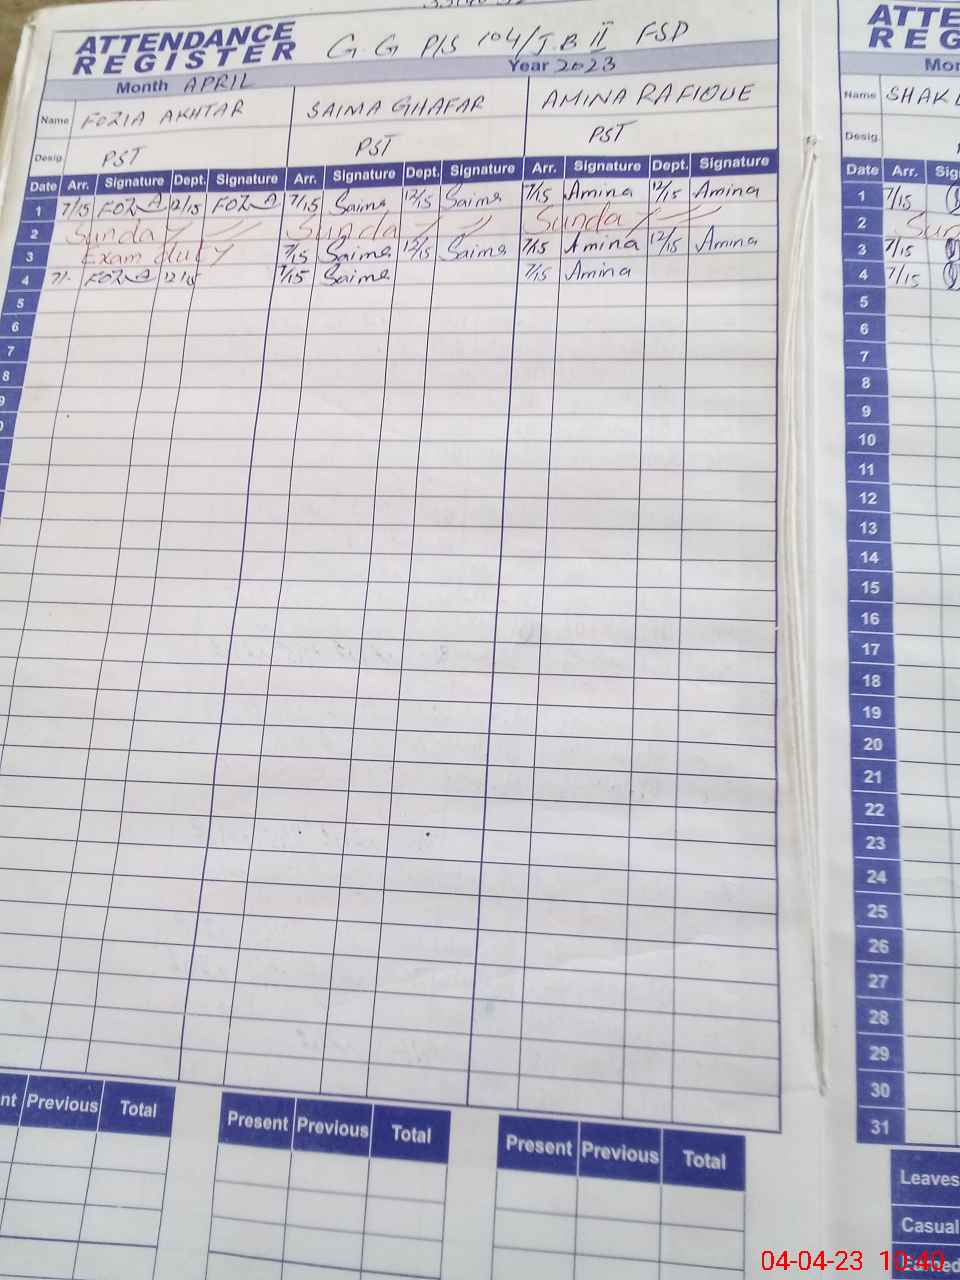 ATTENDANCE
REGISTER
G.G P/S 104/J.B II FSD
Month APRIL Year 2023
Name FOZIA AKHTAR SAIMA GHAFAR AMINA RAFIQUE
Desig. PST PST PST
Date Arr. Signature Dept. Signature Arr. Signature Dept. Signature Arr. Signature Dept. Signature
1 7/15 FOZIA 12/15 FOZIA 7/15 Saima 12/15 Saima 7/15 Amina 12/15 Amina
2 Sunday Sunday Sunday
3 Exam duty 7/15 Saima 12/15 Saima 7/15 Amina 12/15 Amina
4 7/- FOZIA 12/15 7/15 Saima 7/15 Amina
5
6
7
8
9
0
nt Previous Total Present Previous Total Present Previous Total
ATTE
REG
Mon
Name SHAK
Desig.
Date Arr. Sig
1 7/15
2 Sun
3 7/15
4 7/15
5
6
7
8
9
10
11
12
13
14
15
16
17
18
19
20
21
22
23
24
25
26
27
28
29
30
31
Leaves
Casual
04-04-23 10:40